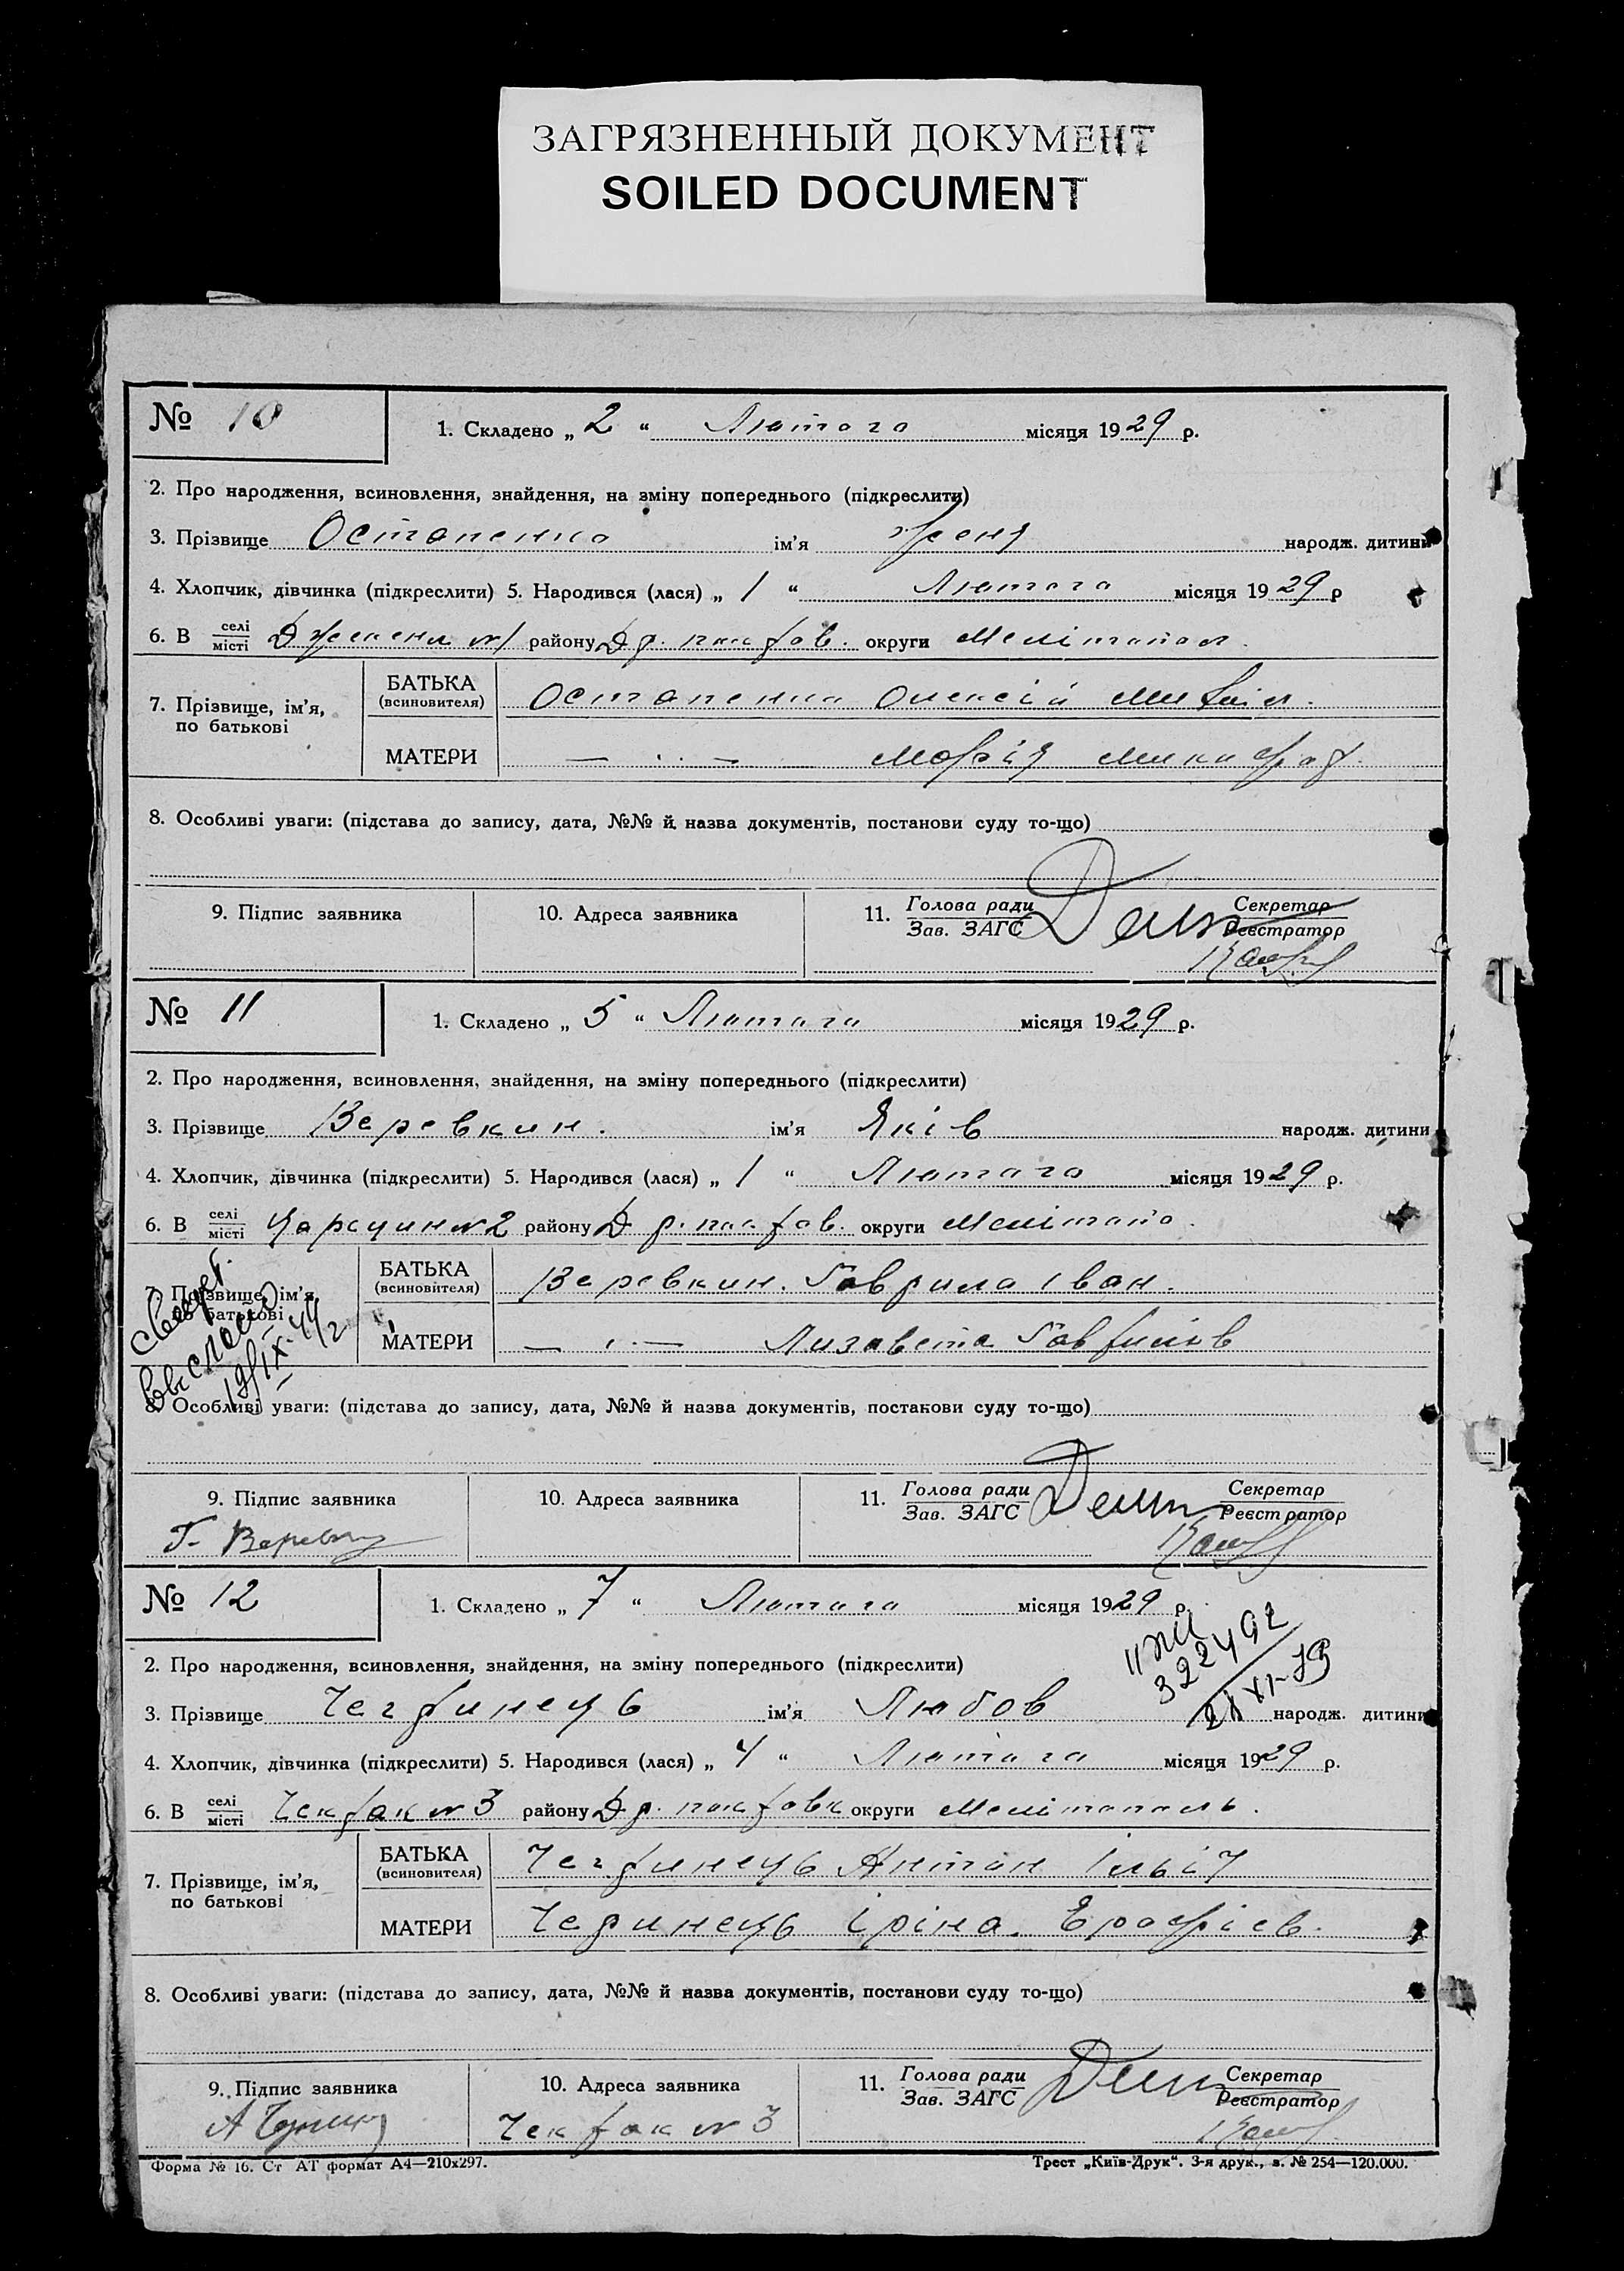 ЗАГРЯЗНЕННЫЙ ДОКУМЕНТ
SOILED DOCUMENT
№ 10
1. Складено „ 2 “ Лютого місяця 1929 р.
2. Про народження, всиновлення, знайдення, на зміну попереднього (підкреслити)
3. Прізвище Остапенко ім'я Женя народж. дитини
4. Хлопчик, дівчинка (підкреслити) 5. Народився (лася) „ 1 “ Лютого місяця 1929 р
6. В селі місті №1 району округи Мелітопол.
7. Прізвище, ім'я, по батькові
БАТЬКА (всиновителя) Остапенко Олексій
МАТЕРИ — ·· — Марія
8. Особливі уваги: (підстава до запису, дата, №№ й назва документів, постанови суду то-що)
9. Підпис заявника 10. Адреса заявника 11. Голова ради Зав. ЗАГС Секретар Реєстратор
№ 11
1. Складено „ 5 “ Лютого місяця 1929 р.
2. Про народження, всиновлення, знайдення, на зміну попереднього (підкреслити)
3. Прізвище Веревкин. ім'я Яків народж. дитини
4. Хлопчик, дівчинка (підкреслити) 5. Народився (лася) „ 1 “ Лютого місяця 1929 р.
6. В селі місті №2 району округи Мелітопо.
7. Прізвище, ім'я, по батькові
БАТЬКА (всиновителя) Веревкин. Гаврила Іван.
МАТЕРИ — ·· — Лизавета Гаврилов
8. Особливі уваги: (підстава до запису, дата, №№ й назва документів, постанови суду то-що)
9. Підпис заявника 10. Адреса заявника 11. Голова ради Зав. ЗАГС Секретар Реєстратор
Г. Веревкин
№ 12
1. Складено „ 7 “ Лютого місяця 1929 р.
2. Про народження, всиновлення, знайдення, на зміну попереднього (підкреслити)
3. Прізвище ім'я Любов народж. дитини
4. Хлопчик, дівчинка (підкреслити) 5. Народився (лася) „ 4 “ Лютого місяця 1929 р.
6. В селі місті Чекрак №3 району округи Мелітополь.
7. Прізвище, ім'я, по батькові
БАТЬКА (всиновителя) Антон Ільіч
МАТЕРИ Іріна. Ерофієв.
8. Особливі уваги: (підстава до запису, дата, №№ й назва документів, постанови суду то-що)
9. Підпис заявника 10. Адреса заявника 11. Голова ради Зав. ЗАГС Секретар Реєстратор
Чекрак №3
Форма № 16. Ст АТ формат А4—210х297.
Трест „Київ-Друк“. 3-я друк., з. № 254—120.000.